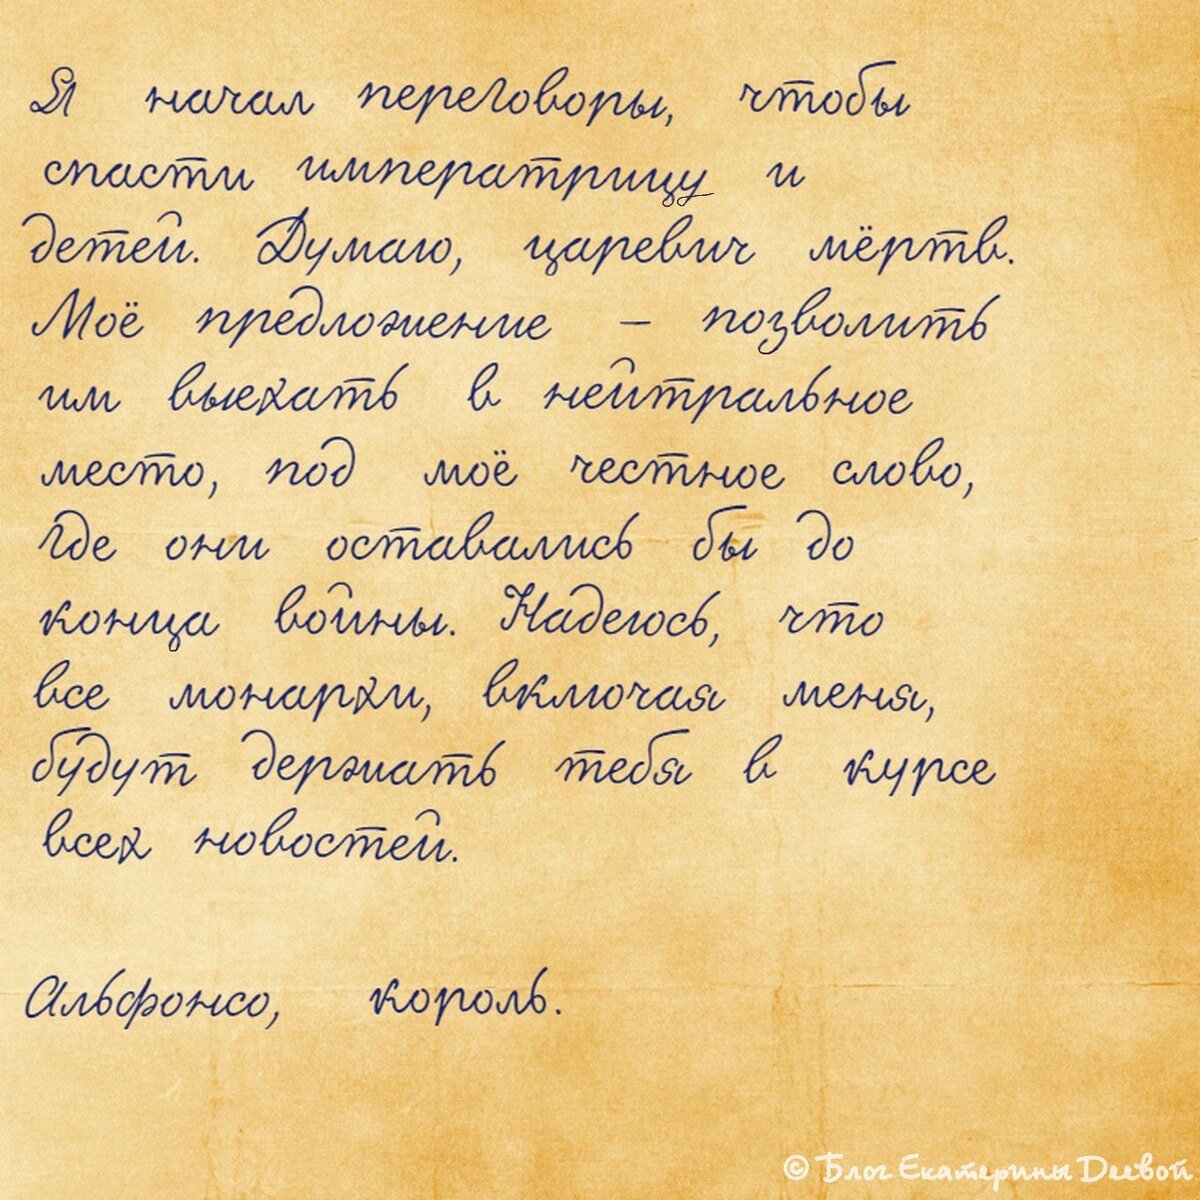 Я начал переговоры, чтобы
спасти императрицу и
детей. Думаю, царевич мёртв.
Моё предложение – позволить
им выехать в нейтральное
место, под моё честное слово,
где они оставались бы до
конца войны. Надеюсь, что
все монархи, включая меня,
будут держать тебя в курсе
всех новостей.
Альфонсо, король.
© Блог Екатерины Деевой